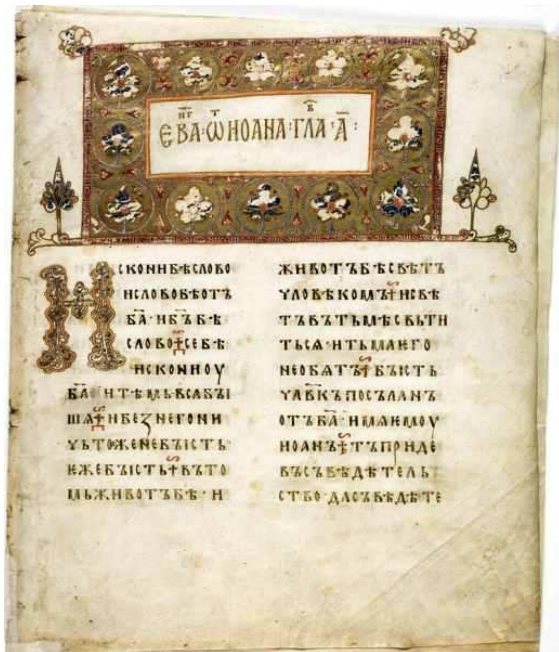 ЕВАНГ · ѾИОАНА · ГЛАВ · А҃ :
Искони бѣ слово
и слово бѣ отъ
б҃а · и б҃ъ бѣ
слово · се бѣ
искони оу
б҃а · и тѣмь вса бꙑ
шѧ · и беꙁ него ни
чьтоже не бꙑсть ·
ѥже бꙑсть · въ то
мь животъ бѣ · и
животъ бѣ свѣтъ
чловѣкомъ · и свѣ
тъ въ тьмѣ свьти
ться · и тьма ѥго
не обятъ · бꙑсть
чл҃вкъ посъланъ
отъ б҃а · имѧ ѥмоу
иоанъ · тъ приде
въ съвѣдѣтель
ство · да съвѣдѣте